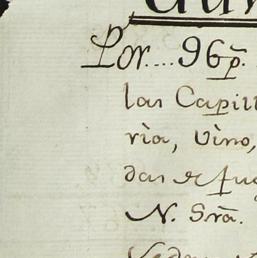 Por....96p̃.
las Capill
ria, vino,
das de fue
N. Srã.